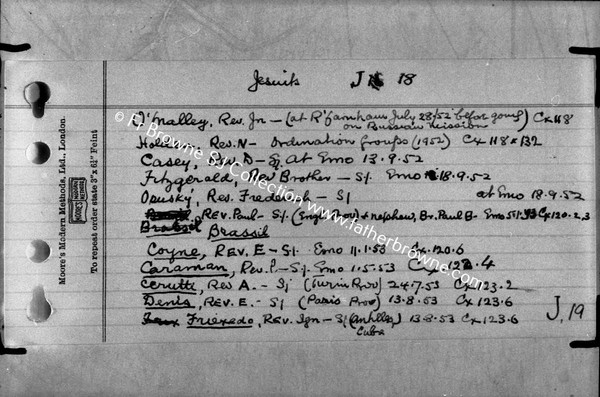 Jesuits J 18
O'Malley, Rev. Jn - (at R'farnham July 28/52 before going on Russian mission) Cx 118
Rev. N - Ordination Groups (1952) Cx 118 & 132
Casey, Rev. D - Sj. At Emo 13.9.52
Fitzgerald, Rev Brother - Sj. Emo 18.9.52
Rev. Frederick - SJ at Emo 18.9.52
Brassil, Rev. Paul - Sj. & nephew, Br. Paul B - Emo Cx 120.2,3
Brassil
Coyne, Rev. E - Sj. Emo 11.1.53 Cx 120.6
Caraman, Rev. P - Sj. Emo 1.5.53 Cx 121.4
Cerutti, Rev A. - Sj (Turin Prov) 24.7.53 Cx 123.2
Denis, Rev. E. - SJ (Paris Prov) 13.8.53 Cx 123.6
Friexedo, Rev. Ign - SJ (Antilles, Cuba) 13.8.53 Cx 123.6
J.19
Moore's Modern Methods, Ltd., London.
To repeat order state 3" x 6¼" Feint
© Fr Browne SJ Collection www.fatherbrowne.com